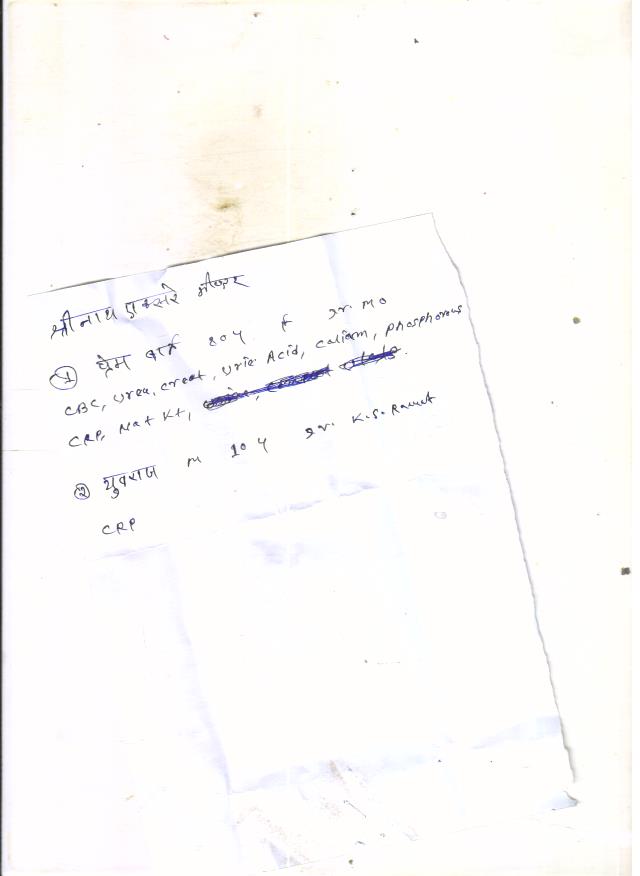 श्रीनाथ एक्सरे भीण्डर
① प्रेम बाई 80 y f Dr. MO
CBC, Urea, creat, Uric Acid, Caliam, phosphorus
CRP, Na+ K+,
② युवराज M 10 y Dr. K.S. Rawat
CRP